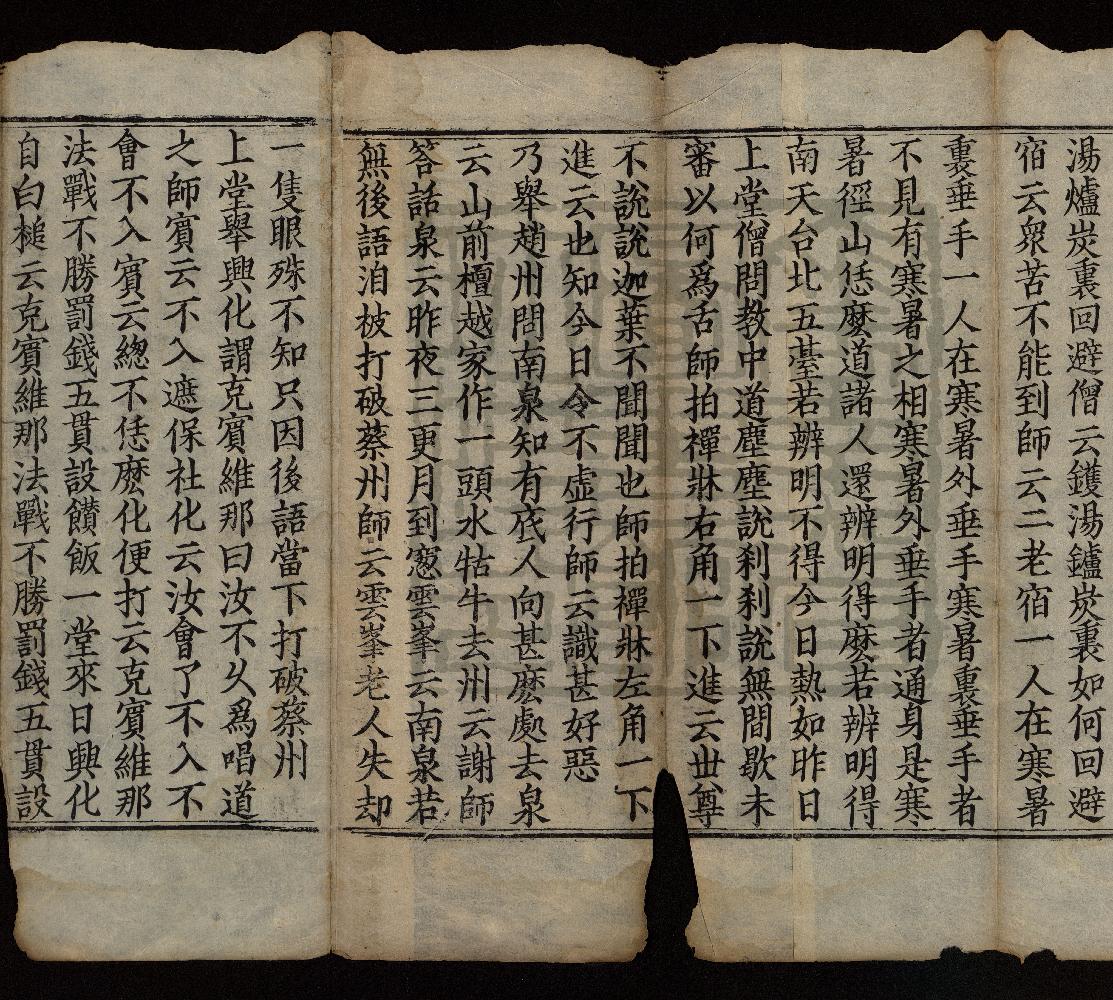 湯爐炭裏回避僧云鑊湯鑪炭裏如何回避
宿云衆苦不能到師云二老宿一人在寒暑
裏垂手一人在寒暑外垂手寒暑裏垂手者
不見有寒暑之相寒暑外垂手者通身是寒
暑徑山恁麽道諸人還辨明得麽若辨明得
南天台北五臺若辨明不得今日熱如昨日
上堂僧問教中道塵塵說刹刹說無間歇未
審以何爲舌師拍禪牀右角一下進云世尊
不說說迦葉不聞聞也師拍禪牀左角一下
進云也知今日令不虛行師云識甚好惡
乃舉趙州問南泉知有底人向甚麽處去泉
云山前檀越家作一頭水牯牛去州云謝師
答話泉云昨夜三更月到窻雲峯云南泉若
無後語洎被打破蔡州師云雲峯老人失却
一隻眼殊不知只因後語當下打破蔡州
上堂舉興化謂克賓維那曰汝不久爲唱道
之師賓云不入遮保社化云汝會了不入不
會不入賓云總不恁麽化便打云克賓維那
法戰不勝罰錢五貫設饡飯一堂來日興化
自白槌云克賓維那法戰不勝罰錢五貫設